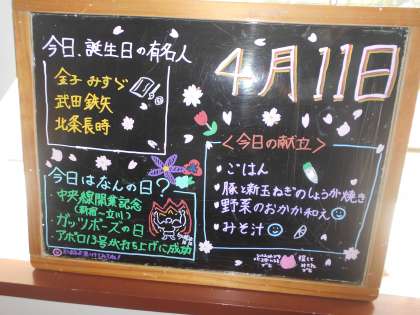 今日、誕生日の有名人
金子 みすゞ
武田 鉄矢
北条長時
4月11日
今日はなんの日?
中央線開業記念
(新宿〜立川)
ガッツポーズの日
アポロ13号打ち上げに成功
<今日の献立>
・ごはん
・豚と新玉ねぎのしょうが焼き
・野菜のおかか和え
・みそ汁